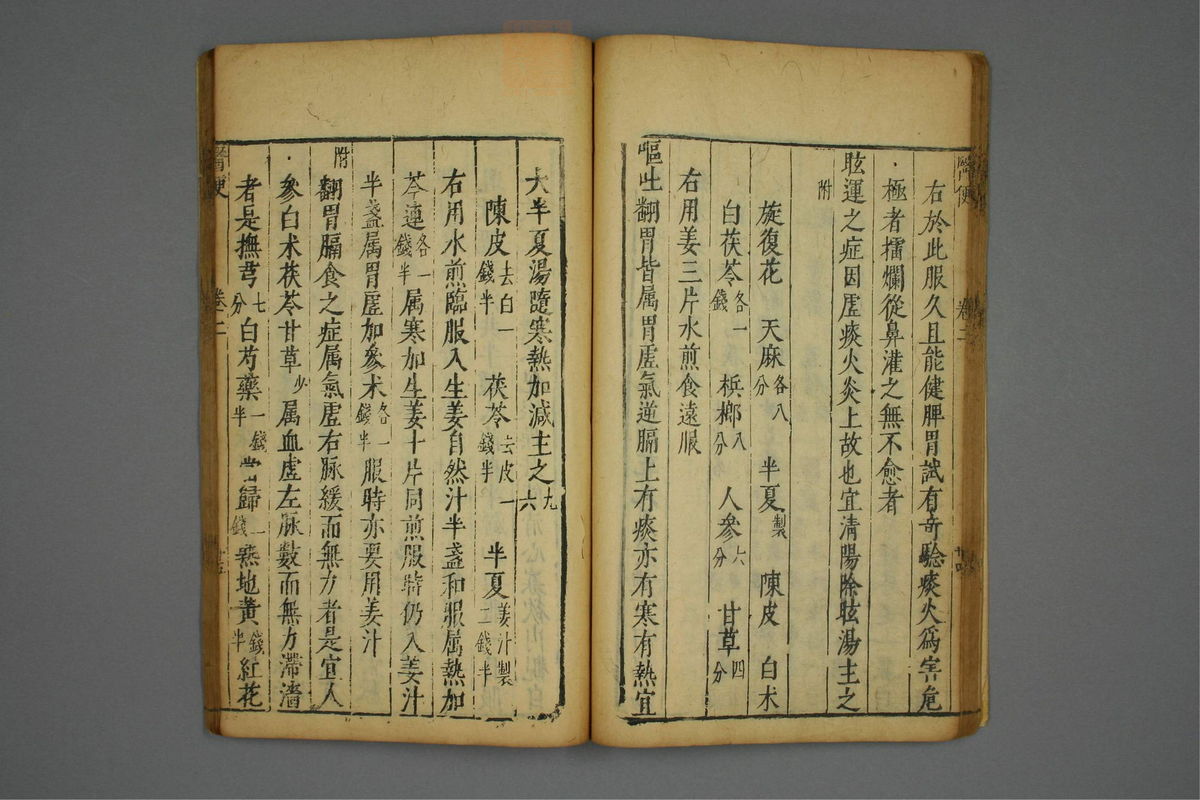 右於此服久且能健脾胃試有奇驗痰火爲害危
極者擂爛從鼻灌之無不愈者
眩運之症因虛痰火炎上故也宜清陽除眩湯主之
附
旋復花 天麻各八分 半夏製 陳皮 白术
白茯苓各一錢 梹榔八分 人參六分 甘草四分
右用姜三片水煎食遠服
嘔吐翻胃皆属胃虛氣逆膈上有痰亦有寒有熱宜
大半夏湯隨寒熱加減主之九六
陳皮去白一錢半 茯苓去皮一錢半 半夏姜汁製二錢半
右用水煎臨服入生姜自然汁半盞和服属熱加
芩連各一錢半属寒加生姜十片同煎服時仍入姜汁
半盞属胃虛加參术各一錢半服時亦要用姜汁
附
翻胃膈食之症属氣虛右脉緩而無力者是宜人
參白术茯苓甘草少属血虛左脉數而無力滯濇
者是撫芎七分白芍藥一錢半當歸一錢熟地黃錢半紅花
醫便 卷二
醫便 卷二